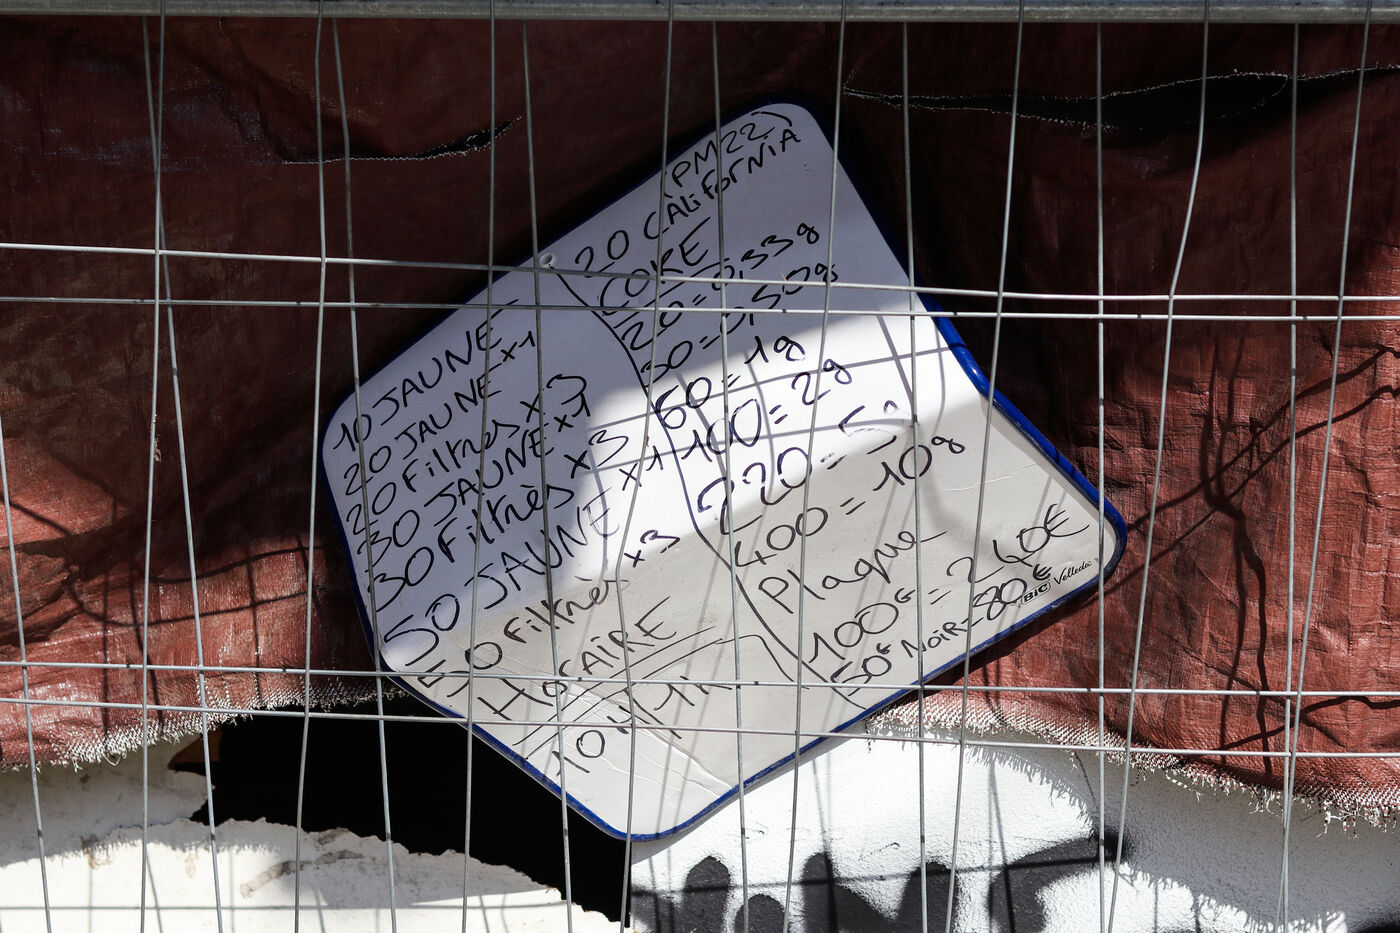 10 JAUNE
20 JAUNE x1
20 Filtrès x3
30 JAUNE x1
30 Filtrès x3
50 JAUNE x1
50 Filtrès x3
10
(PM22)
20 CALiFORNiA
COKE
20 = 0,33g
30 = 0,50g
60 = 1g
100 = 2g
220 = 5g
400 = 10g
Plaque
100G = 240€
50G NOiR = 80€
BIC Velleda